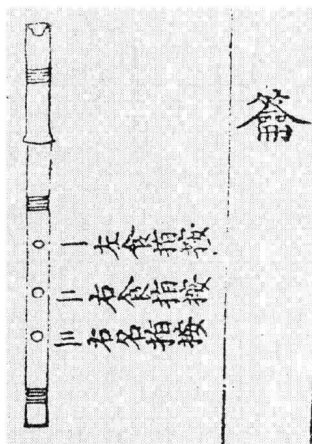 籥
一左食指按
二右食指按
三右名指按